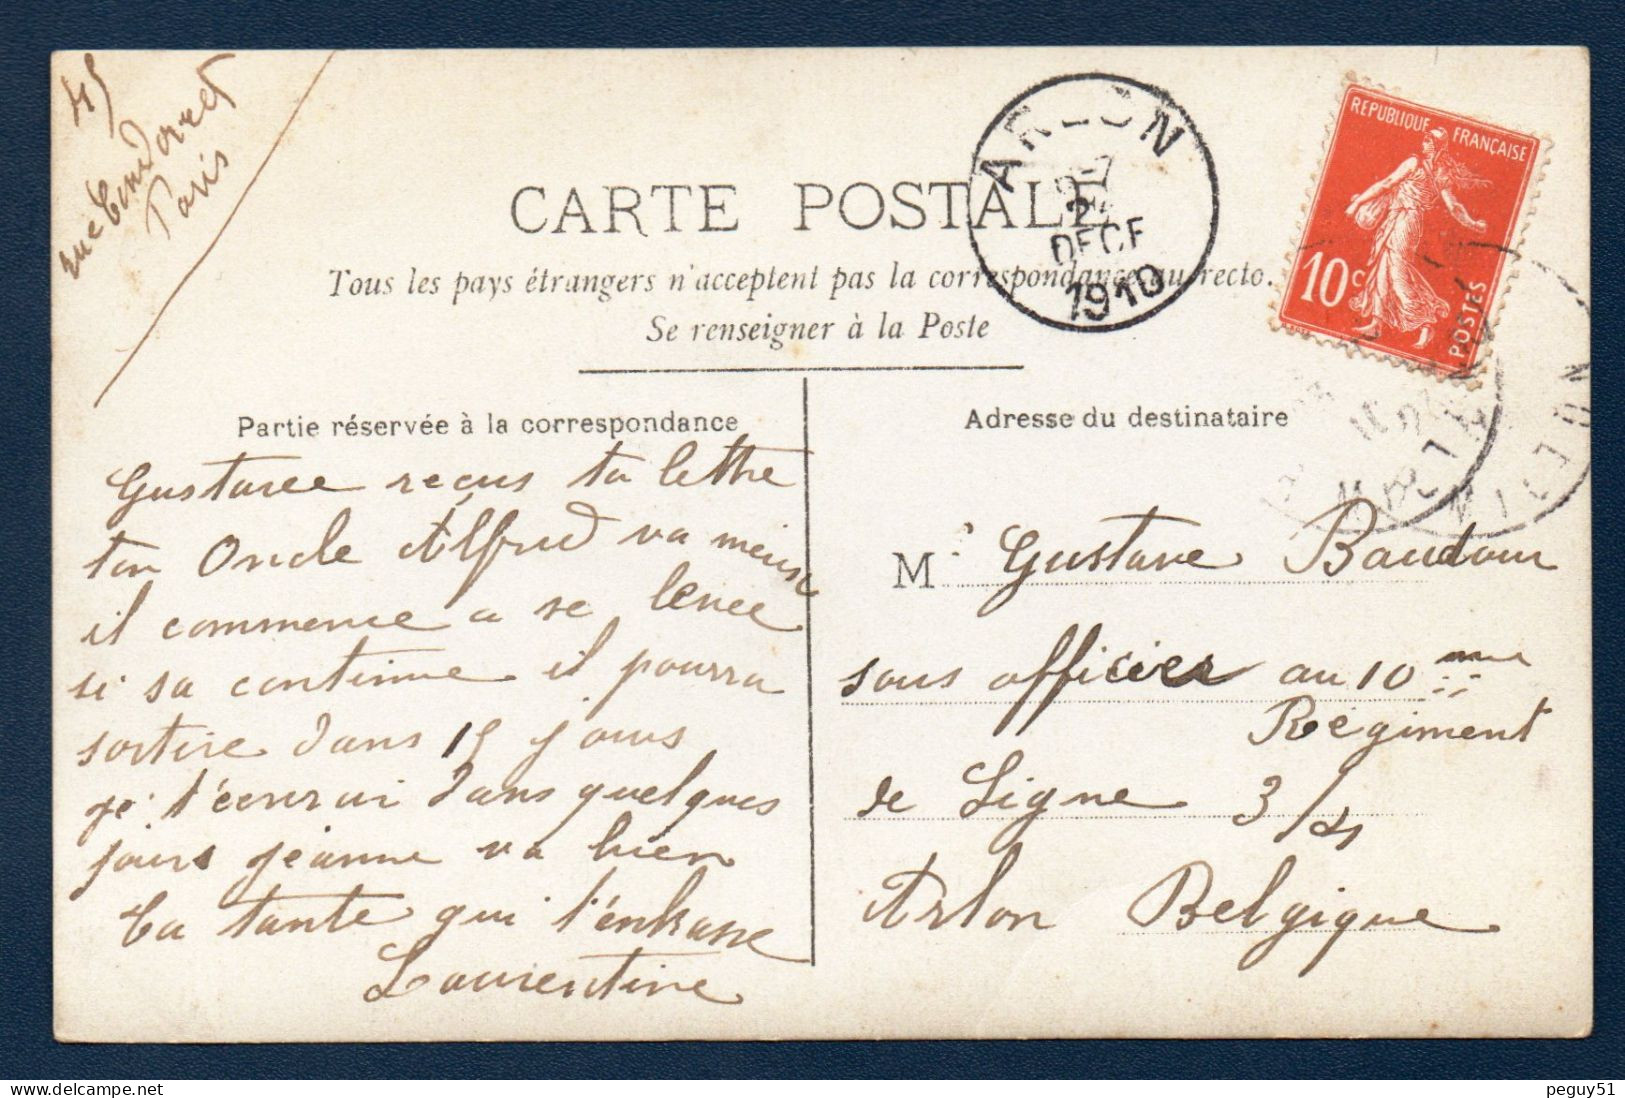 45
rue Condorcet
Paris
ARLON
7
2
DECE
1910
REPUBLIQUE FRANÇAISE
10c
POSTES
CARTE POSTALE
Tous les pays étrangers n'acceptent pas la correspondance au recto.
Se renseigner à la Poste
Partie réservée à la correspondance
Gustavee recus ta lettre
ton Oncle Alfred va mieux
il commence a se levee
si sa continue il pourra
sortire dans 15 jours
je t'ecrirai dans quelques
jours jeanne va bien
Ta tante qui t'enbrasse
Laurentine
Adresse du destinataire
M Gustave Baudour
sous officier au 10me
Régiment
de Ligne 3/4
Arlon Belgique
peguy51